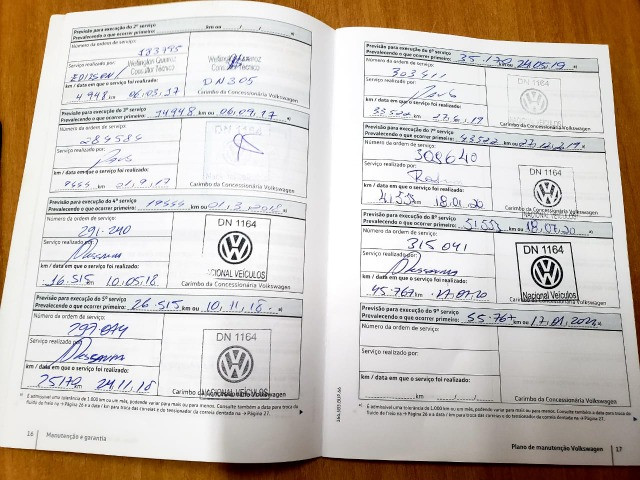 Previsão para execução do 2º serviço
Prevalecendo o que ocorrer primeiro: km ou / / a)
Número da ordem de serviço:
183795
Serviço realizado por:
EDIJSON/
Wellington Queiroz
Consultor Técnico
DN305
km / data em que o serviço foi realizado:
4.948 km 06,03,17
Carimbo da Concessionária Volkswagen
Previsão para execução do 3º serviço
Prevalecendo o que ocorrer primeiro: 14948 km ou 06,09,17 a)
Número da ordem de serviço:
284584
DN 1164
Serviço realizado por:
km / data em que o serviço foi realizado:
9555 km 21,9,17
Carimbo da Concessionária Volkswagen
Previsão para execução do 4º serviço
Prevalecendo o que ocorrer primeiro: 19555 km ou 21,3,2018 a)
Número da ordem de serviço:
291.240
DN 1164
Serviço realizado por:
km / data em que o serviço foi realizado:
16.515 km 10,05,18
NACIONAL VEÍCULOS
Carimbo da Concessionária Volkswagen
Previsão para execução do 5º serviço
Prevalecendo o que ocorrer primeiro: 26.515 km ou 10,11,18 a)
Número da ordem de serviço:
297.074
DN 1164
Serviço realizado por:
km / data em que o serviço foi realizado:
25172 km 24,11,18
Carimbo da Concessionária Volkswagen
a) É admissível uma tolerância de 1.000 km ou um mês, podendo variar para mais ou para menos. Consulte também a data para troca do
fluido de freio na → Página 26 e a data e km para troca das correias e do tensionador da correia dentada na → Página 27.
16 Manutenção e garantia
Previsão para execução do 6º serviço
Prevalecendo o que ocorrer primeiro: 35.172 km ou 24,05,19 a)
Número da ordem de serviço:
303411
DN 1164
Serviço realizado por:
km / data em que o serviço foi realizado:
33522 km 27,6,19
Carimbo da Concessionária Volkswagen
Previsão para execução do 7º serviço
Prevalecendo o que ocorrer primeiro: 43522 km ou 27,12,2019 a)
Número da ordem de serviço:
309640
DN 1164
Serviço realizado por:
km / data em que o serviço foi realizado:
4155 km 18,01,20
Carimbo da Concessionária Volkswagen
NACIONAL VEÍCULOS
Previsão para execução do 8º serviço
Prevalecendo o que ocorrer primeiro: 5155 km ou 18,07,20 a)
Número da ordem de serviço:
315041
DN 1164
Serviço realizado por:
km / data em que o serviço foi realizado:
45.767 km 17,07,20
Nacional Veículos
Carimbo da Concessionária Volkswagen
Previsão para execução do 9º serviço
Prevalecendo o que ocorrer primeiro: 55.767 km ou 17,01,2021 a)
Número da ordem de serviço:
Serviço realizado por:
km / data em que o serviço foi realizado:
km / /
Carimbo da Concessionária Volkswagen
a) É admissível uma tolerância de 1.000 km ou um mês, podendo variar para mais ou para menos. Consulte também a data para troca do
fluido de freio na → Página 26 e a data e km para troca das correias e do tensionador da correia dentada na → Página 27.
Plano de manutenção Volkswagen 17